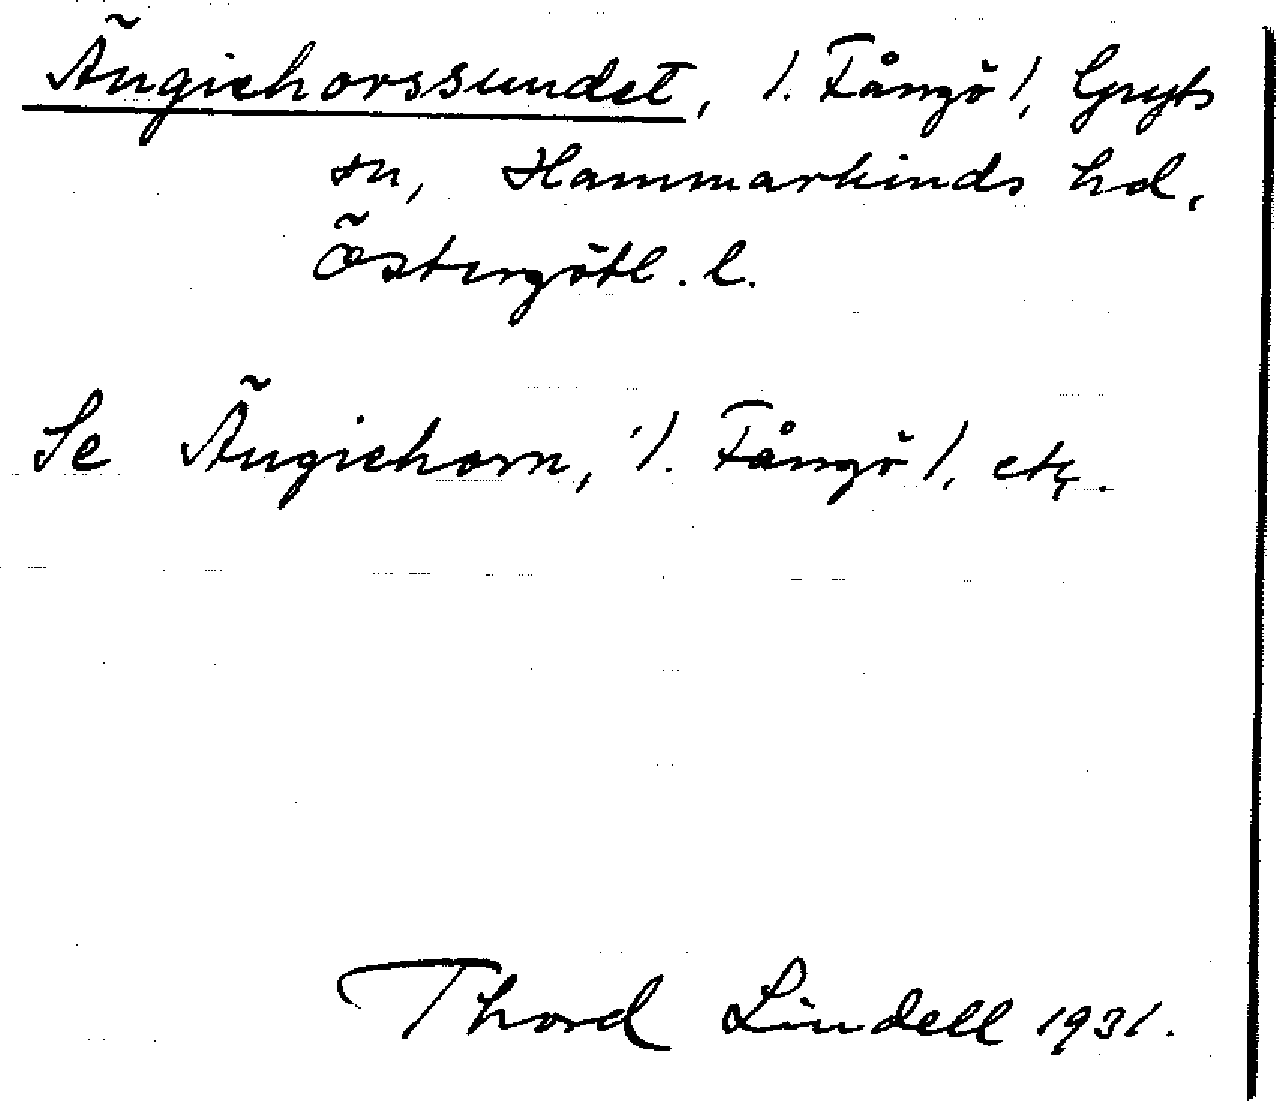 Ängiehorssundet, /. Fångö /, Gryts
sn, Hammarkinds hd.
Östergötl. l.
Se Ängiehorn, /. Fångö /, etc.
Thord Lindell 1931.